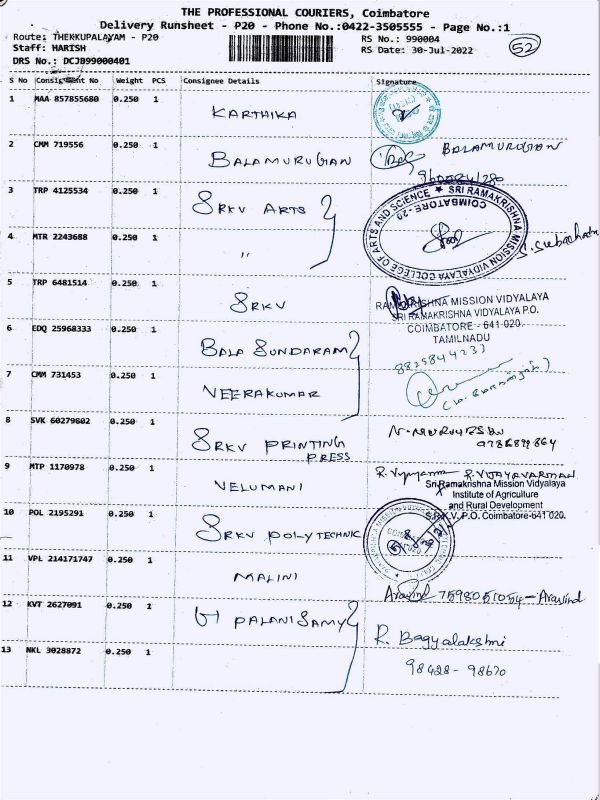 THE PROFESSIONAL COURIERS, Coimbatore
Delivery Runsheet - P20 - Phone No.:0422-3505555 - Page No.:1
Route: THEKKUPALAYAM - P20
RS No.: 990004
52
Staff: HARISH
RS Date: 30-Jul-2022
DRS No.: DCJB99000401
S No Consignment No Weight PCS Consignee Details Signature
1 MAA 857855680 0.250 1 KARTHIKA
2 CMM 719556 0.250 1 BALAMURUGAN BALAMURUGAN
3 TRP 4125534 0.250 1 SRKV ARTS
SRI RAMAKRISHNA MISSION VIDYALAYA COLLEGE OF ARTS AND SCIENCE
COIMBATORE-20
4 MTR 2243688 0.250 1 "
5 TRP 6481514 0.250 1 SRKV
RAMAKRISHNA MISSION VIDYALAYA
SRI RAMAKRISHNA VIDYALAYA P.O.
COIMBATORE - 641 020.
TAMILNADU
6 EDQ 25968333 0.250 1 BALA SUNDARAM
7 CMM 731453 0.250 1 VEERAKUMAR
8 SVK 60279802 0.250 1 SRKV PRINTING
PRESS
9 MTP 1170978 0.250 1 VELUMANI R. VIJAYAVARMAN
Sri Ramakrishna Mission Vidyalaya
Institute of Agriculture
and Rural Development
S.R.K.V. P.O. Coimbatore-641 020.
10 POL 2195291 0.250 1 SRKV POLYTECHNIC
11 VPL 214171747 0.250 1 MALINI
Aravind 7598051054 - Aravind
12 KVT 2627091 0.250 1 PALANISAMY
R. Bagyalakshmi
13 NKL 3028872 0.250 1
98428 - 98670